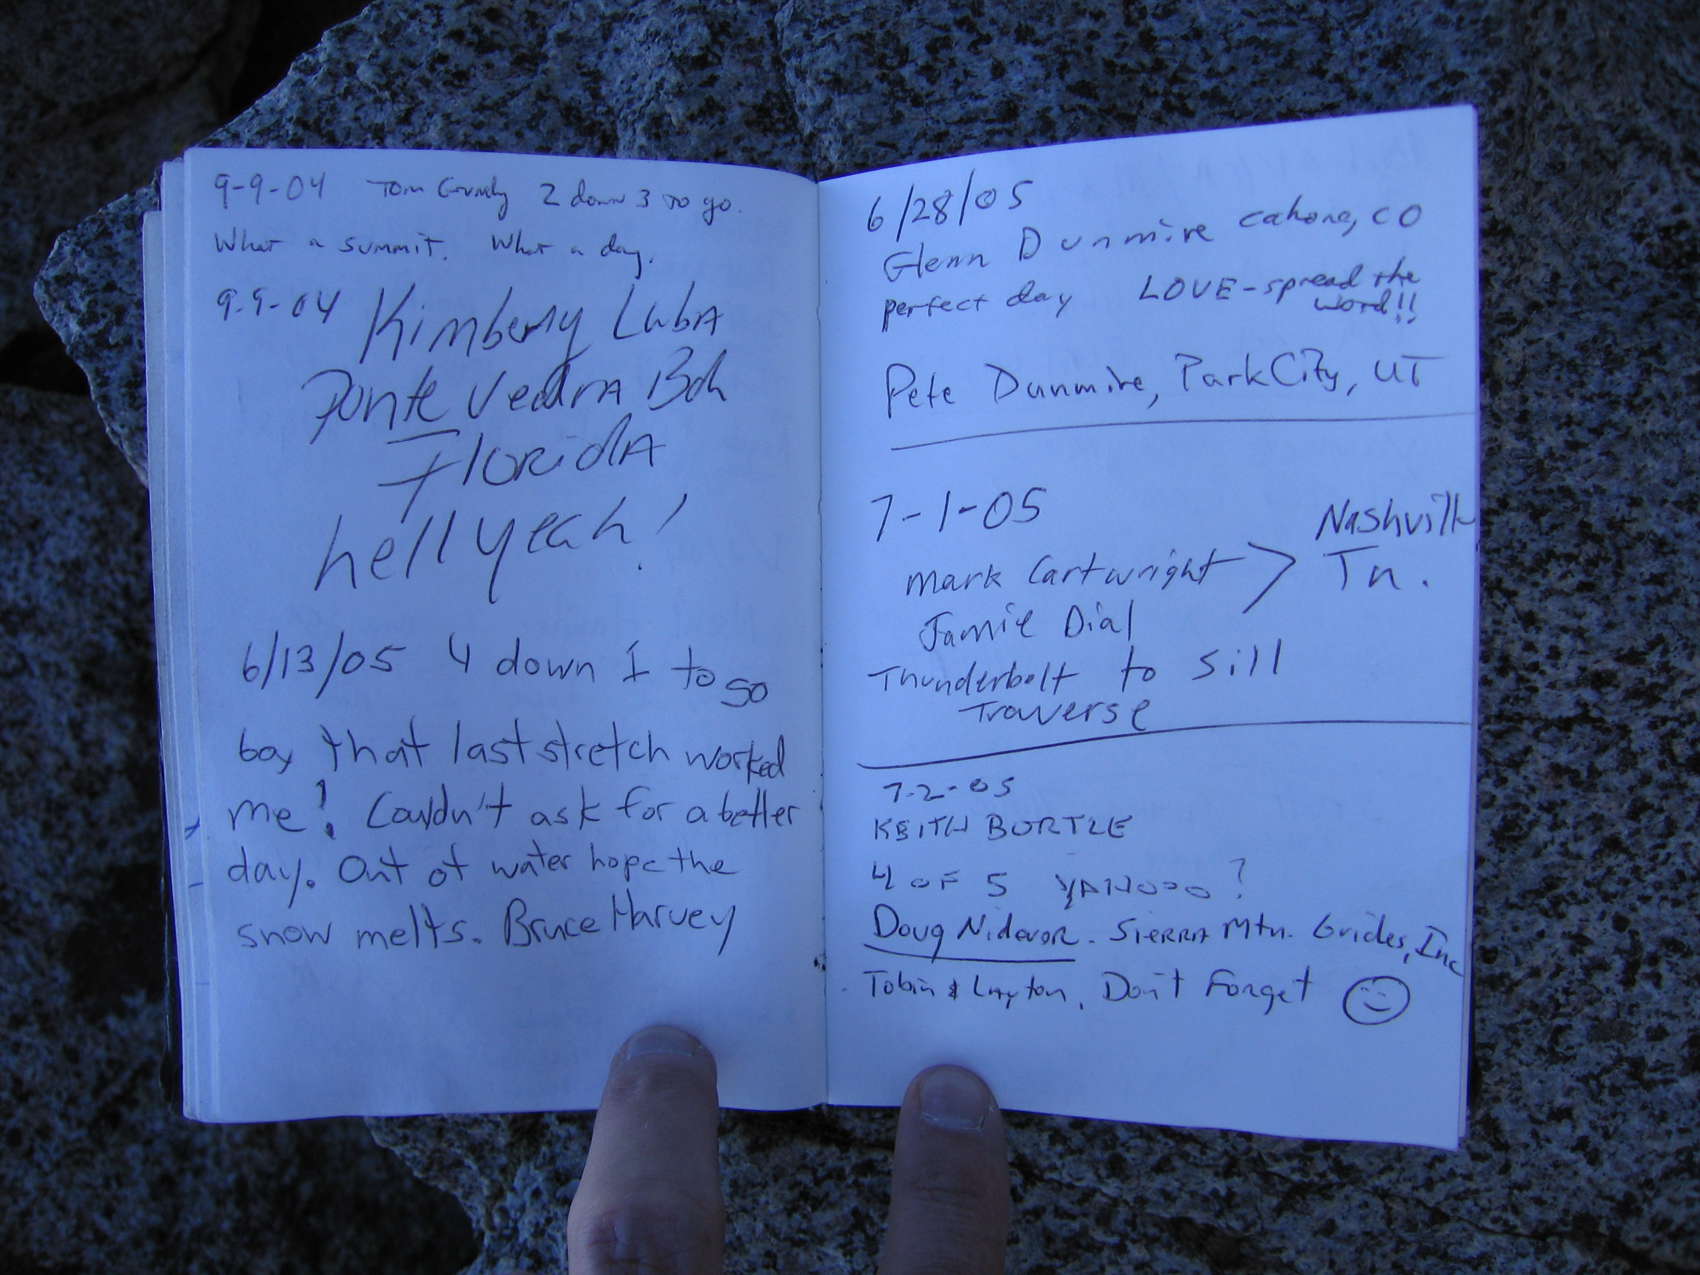 9-9-04 Tom Grundy 2 down 3 to go.
What a summit. What a day.
9-9-04 Kimberly Luba
Ponte Vedra Bch
Florida
hell yeah!
6/13/05 4 down 1 to go
boy that last stretch worked
me! Couldn't ask for a better
day. Out of water hope the
snow melts. Bruce Harvey
6/28/05
Glenn Dunmire Cahone, CO
perfect day LOVE-spread the
word!!
Pete Dunmire, Park City, UT
7-1-05
Nashville
Mark Cartwright > Tn.
Jamie Dial
Thunderbolt to Sill
Traverse
7-2-05
KEITH BORTLE
4 OF 5 YAHOOO?
Doug Nidever. Sierra Mtn. Guides, Inc
Tobin & Layton, Don't Forget